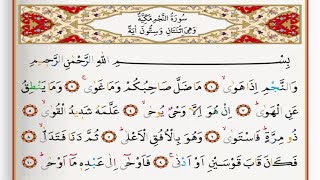 سُورَةُ النَّجْمِ مَكِّيَّةٌ
وَهِيَ اثْنَتَانِ وَسِتُّونَ اٰيَةً
بِسْمِ اللّٰهِ الرَّحْمٰنِ الرَّحِيمِ
وَالنَّجْمِ اِذَا هَوٰىۙ ﴿١﴾ مَا ضَلَّ صَاحِبُكُمْ وَمَا غَوٰىۚ ﴿٢﴾ وَمَا يَنْطِقُ
عَنِ الْهَوٰىۜ ﴿٣﴾ اِنْ هُوَ اِلَّا وَحْيٌ يُوحٰىۙ ﴿٤﴾ عَلَّمَهُ شَدِيدُ الْقُوٰىۙ ﴿٥﴾
ذُو مِرَّةٍۜ فَاسْتَوٰىۙ ﴿٦﴾ وَهُوَ بِالْاُفُقِ الْاَعْلٰىۜ ﴿٧﴾ ثُمَّ دَنَا فَتَدَلّٰىۙ ﴿٨﴾
فَكَانَ قَابَ قَوْسَيْنِ اَوْ اَدْنٰىۚ ﴿٩﴾ فَاَوْحٰٓى اِلٰى عَبْدِهِ مَٓا اَوْحٰىۜ ﴿١٠﴾